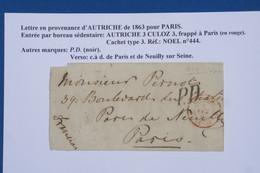 Lettre en provenance d'AUTRICHE de 1863 pour PARIS.
Entrée par bureau sédentaire: AUTRICHE 3 CULOZ 3, frappé à Paris (en rouge).
Cachet type 3. Réf.: NOEL n°444.
Autres marques: P.D. (noir).
Verso: c.à d. de Paris et de Neuilly sur Seine.
Monsieur Pernot
P.D.
39. Boulevard
Parc de Neuilly
Paris